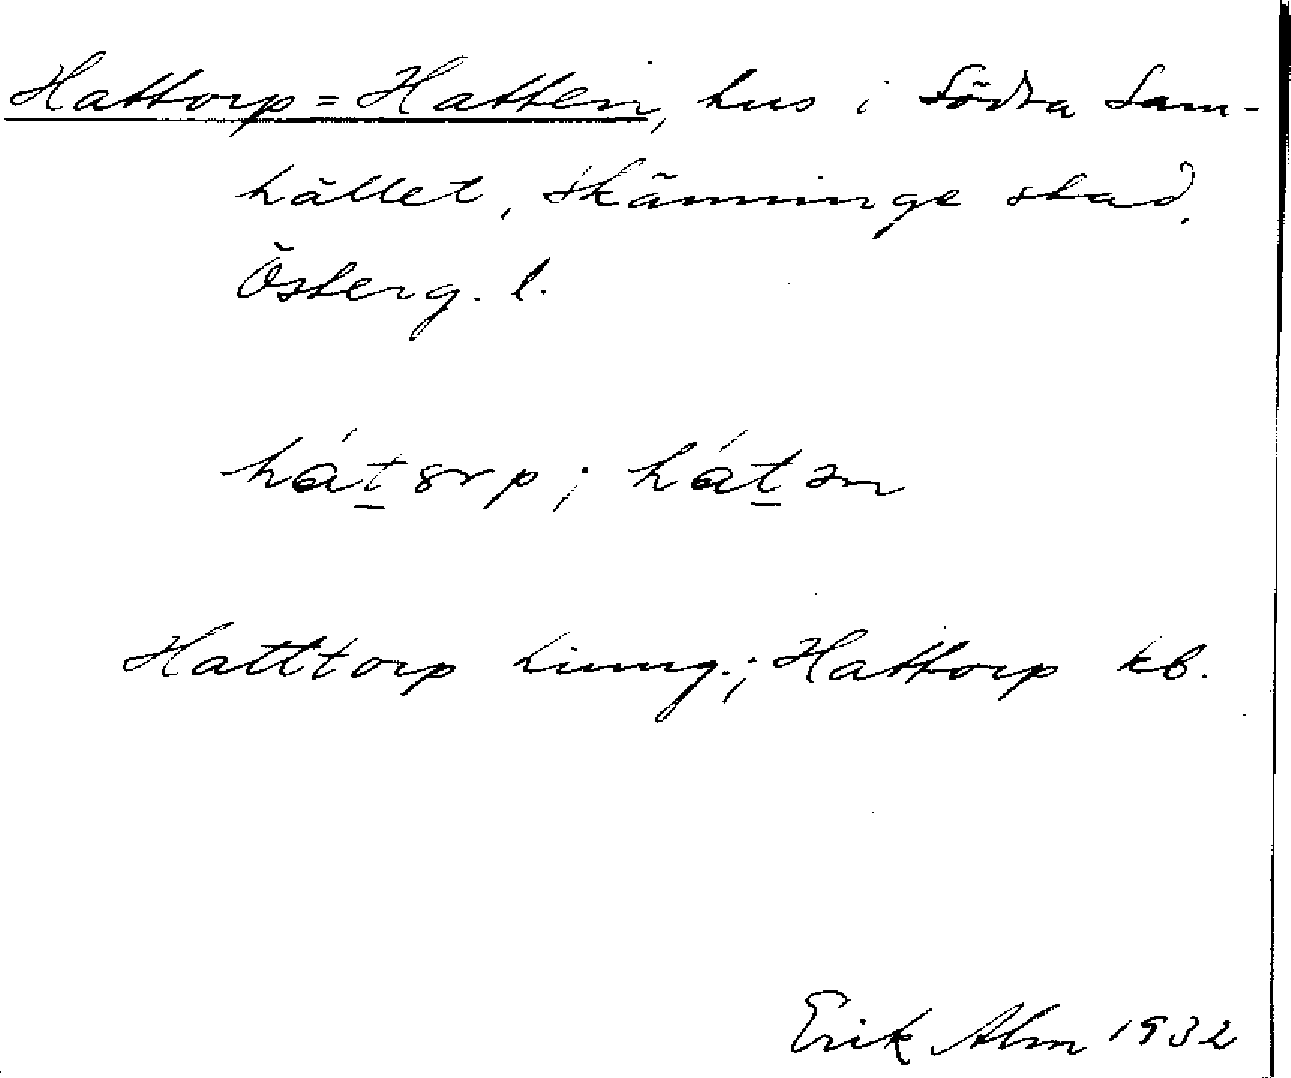 Hattorp = Hatten, hus i Södra Sam-
hället, Skänninge stad,
Österg. l.
hát̲orp; hát̲ən
Hatttorp Ljung.; Hattorp kb.
Erik Alm 1932